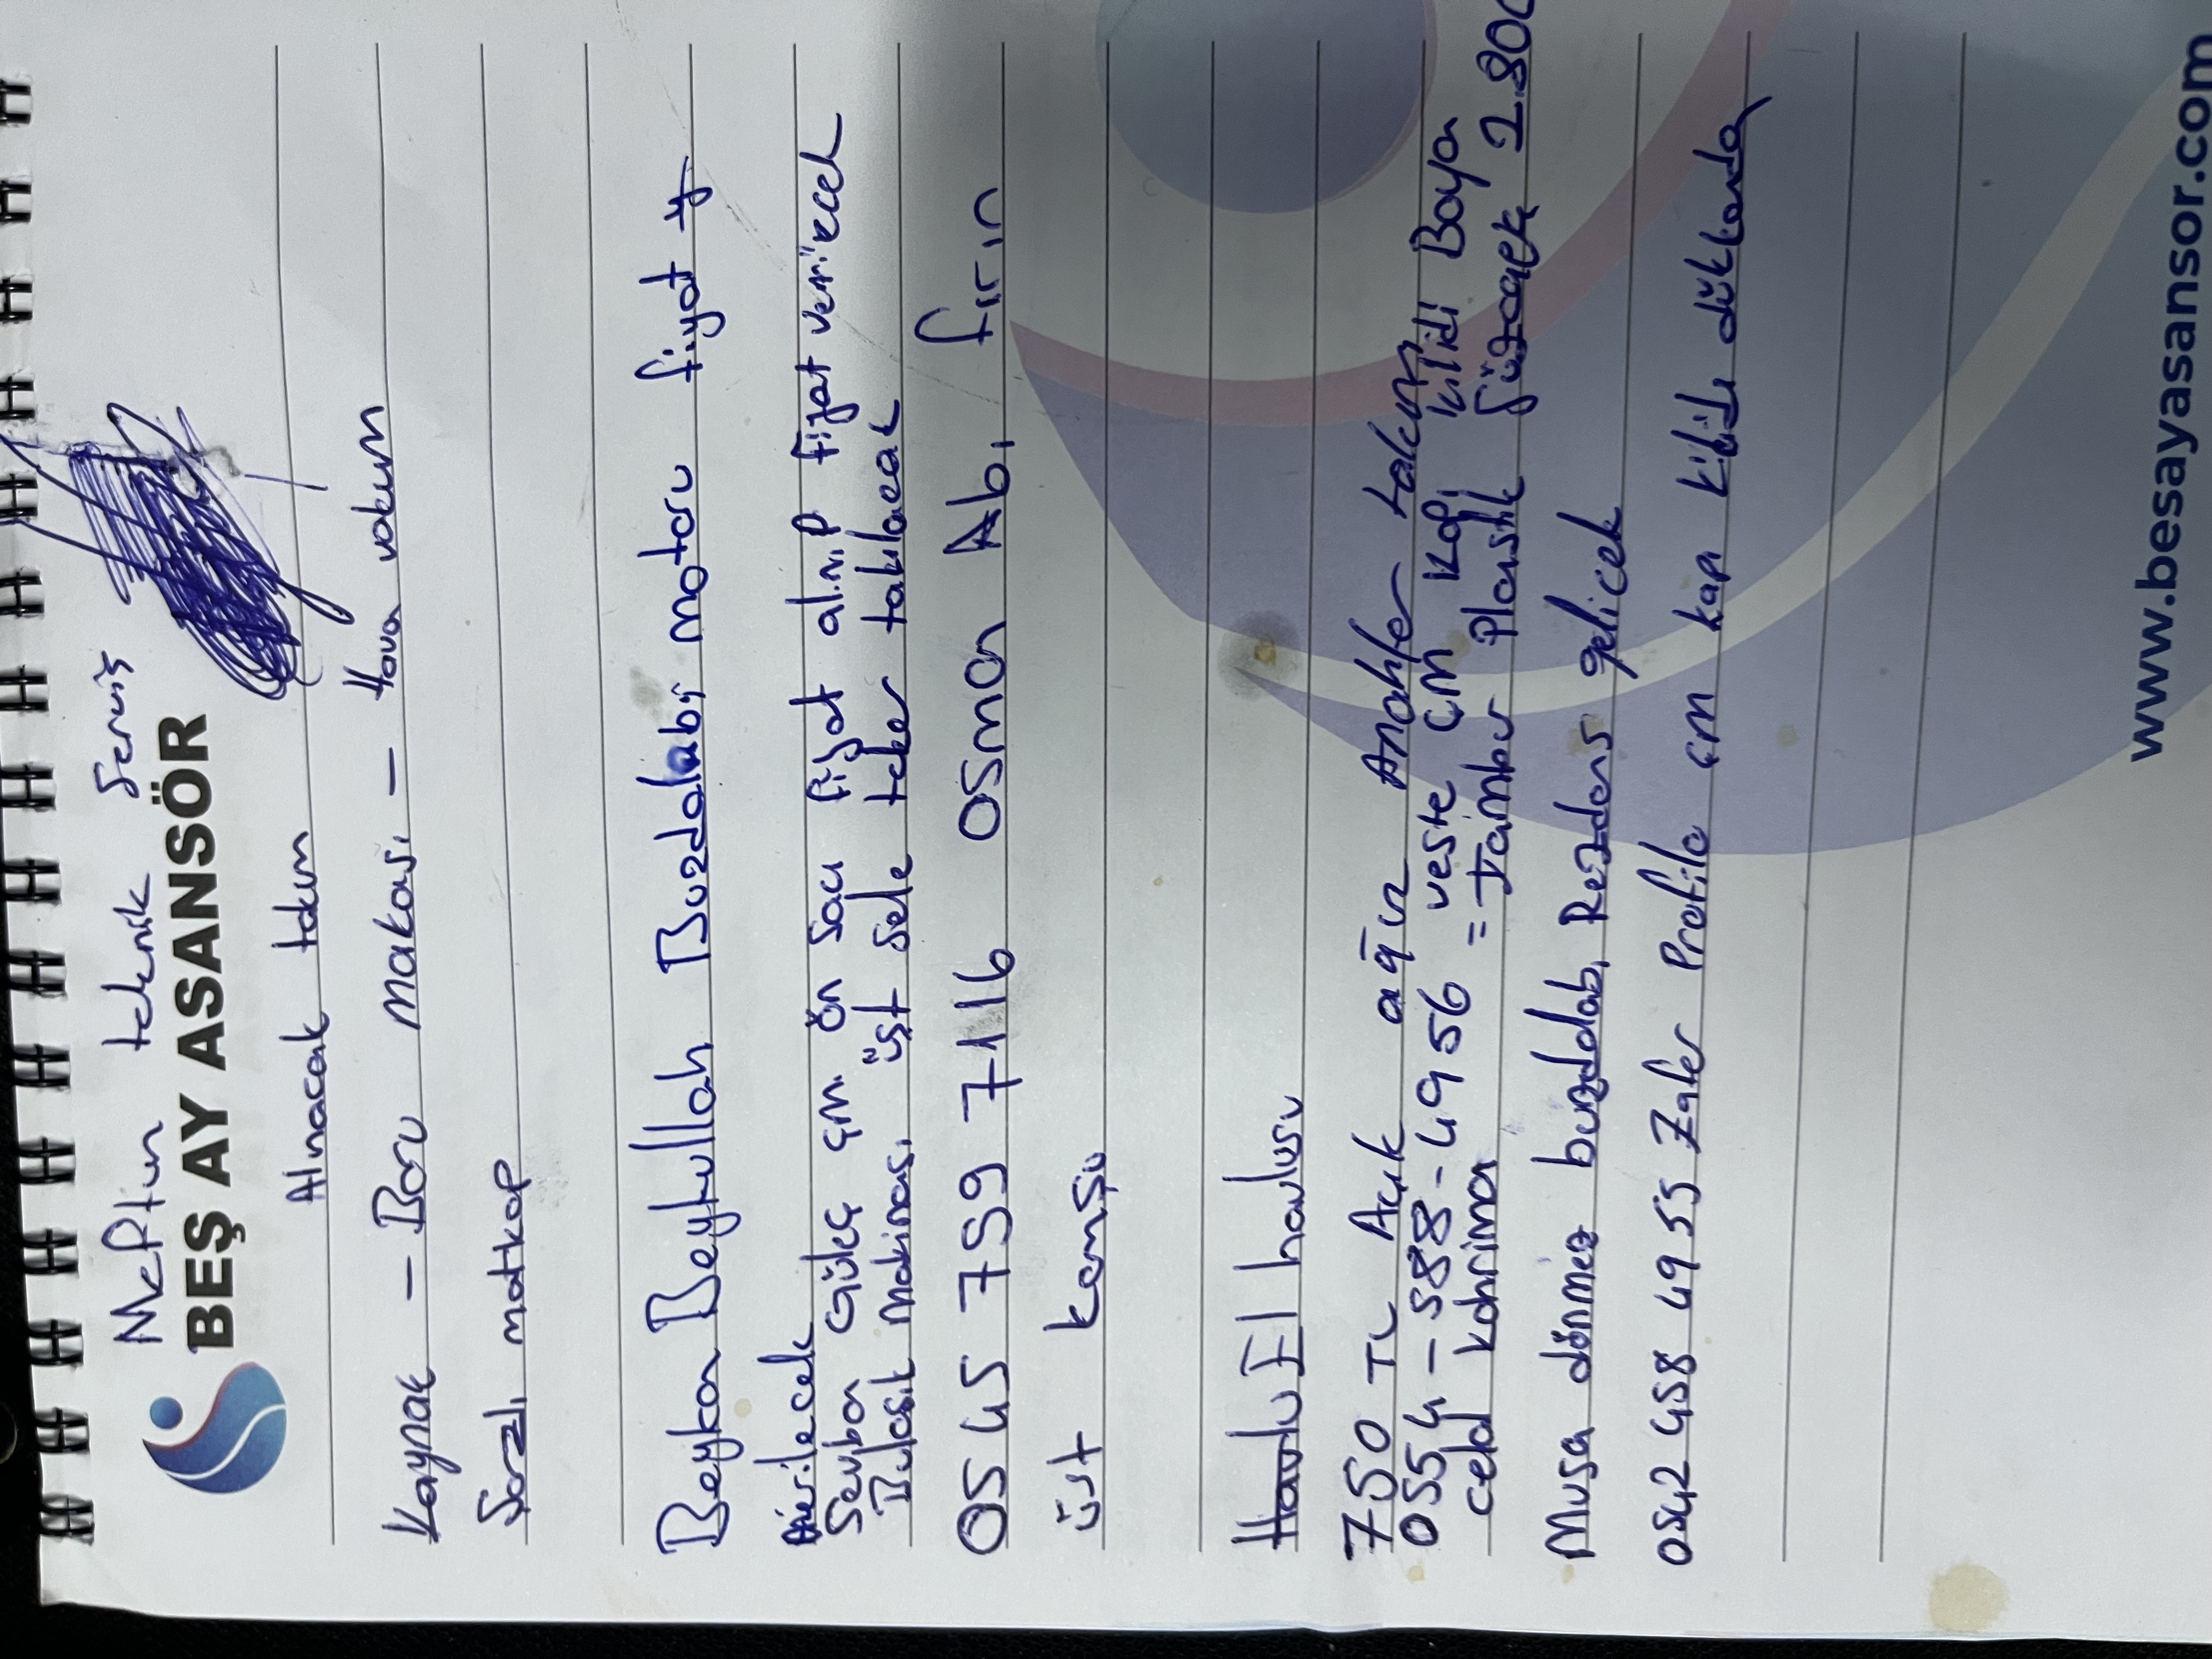 Meftun teknik Servis
BEŞ AY ASANSÖR
Alınacak takım
Kaynak - Boru makası - Hava vakum
Şarzlı matkap
Beykan Beytullah Buzdalabı motoru fiyat y
verilecek
Seyban Güleç çm. ön Sacı fiyat alınıp fiyat verilecek
Bulaşık makinası üst sele teker takılacak
0545 759 7116 Osman Abi fırın
üst komşu
Havlu El havlusu
750 TL Açık ağız Anahter takımı
0554-588-4956 veste ÇM Kapı kilidi Boya
celal kahriman = Tambur Plastik Süzcaek 2.800
Musa dönmez buzdolabı Rezdans gelicek
0542 458 4955 Zafer Profilo çm kapı kilidi dükkanda
www.besayasansor.com